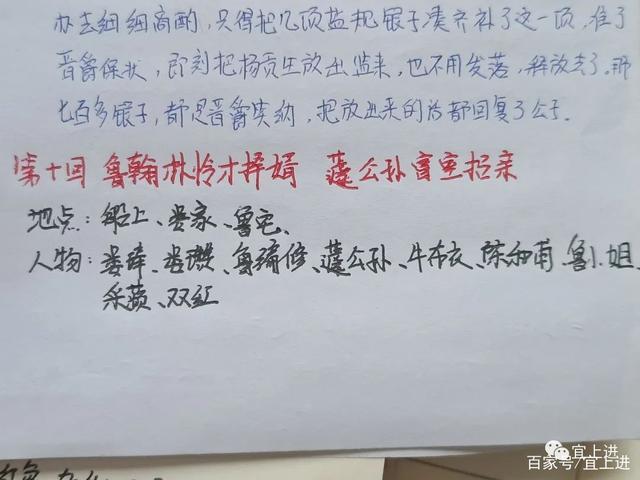 办去细细商酌，只得把几项盐规银子凑齐补了这一项，准了
晋爵保状，即刻把杨贡生放出监来，也不用发落，释放去了。那
七百多银子，都是晋爵笑纳，把放出来的话都回复了公子。
第十回 鲁翰林怜才择婿 蘧公孙富室招亲
地点：船上、娄家、鲁宅、
人物：娄琫、娄瓒、鲁编修、蘧公孙、牛布衣、陈和甫、鲁小姐、
采蘋、双红
宜上进
百家号/宜上进